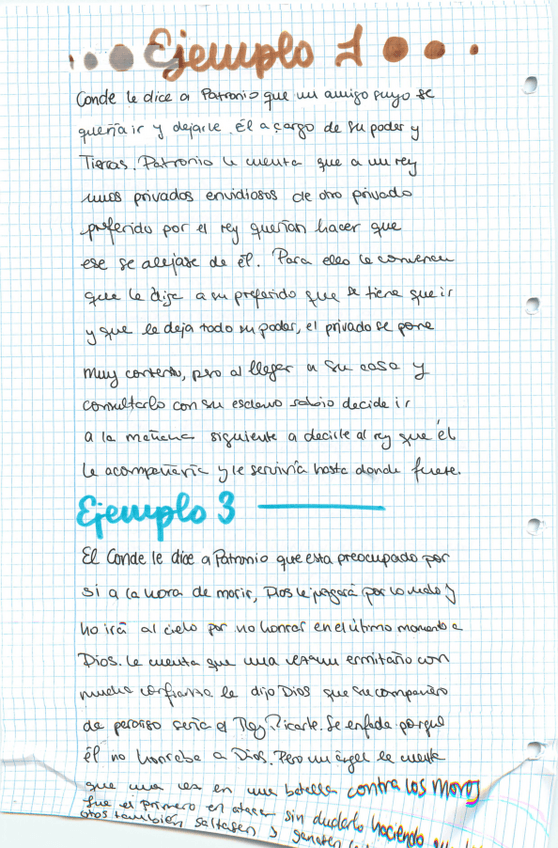 Ejemplo 1
Conde le dice a Patronio que un amigo suyo se
quería ir y dejarle él a cargo de su poder y
Tierras. Patronio le cuenta que a un rey
unos privados envidiosos de otro privado
preferido por el rey querían hacer que
ese se alejase de él. Para ello le convencen
que le dije a su preferido que se tiene que ir
y que le deja todo su poder, el privado se pone
muy contento, pero al llegar a su casa y
consultarlo con su esclavo sabio decide ir
a la mañana siguiente a decirle al rey que él
le acompañaría y le serviría hasta donde fuese.
Ejemplo 3
El Conde le dice a Patronio que esta preocupado por
si a la hora de morir, Dios le pagará por lo malo y
no irá al cielo por no honrar en el último momento a
Dios. Le cuenta que una un ermitaño con
mucha confianza le dijo Dios que su compañero
de paraiso sería el Rey Ricarte. Se enfada porque
él no honraba a Dios. Pero un ángel le cuenta
que una vez en una batalla contra los moros
fue el primero en atacar sin dudarlo haciendo
otros también saltasen y